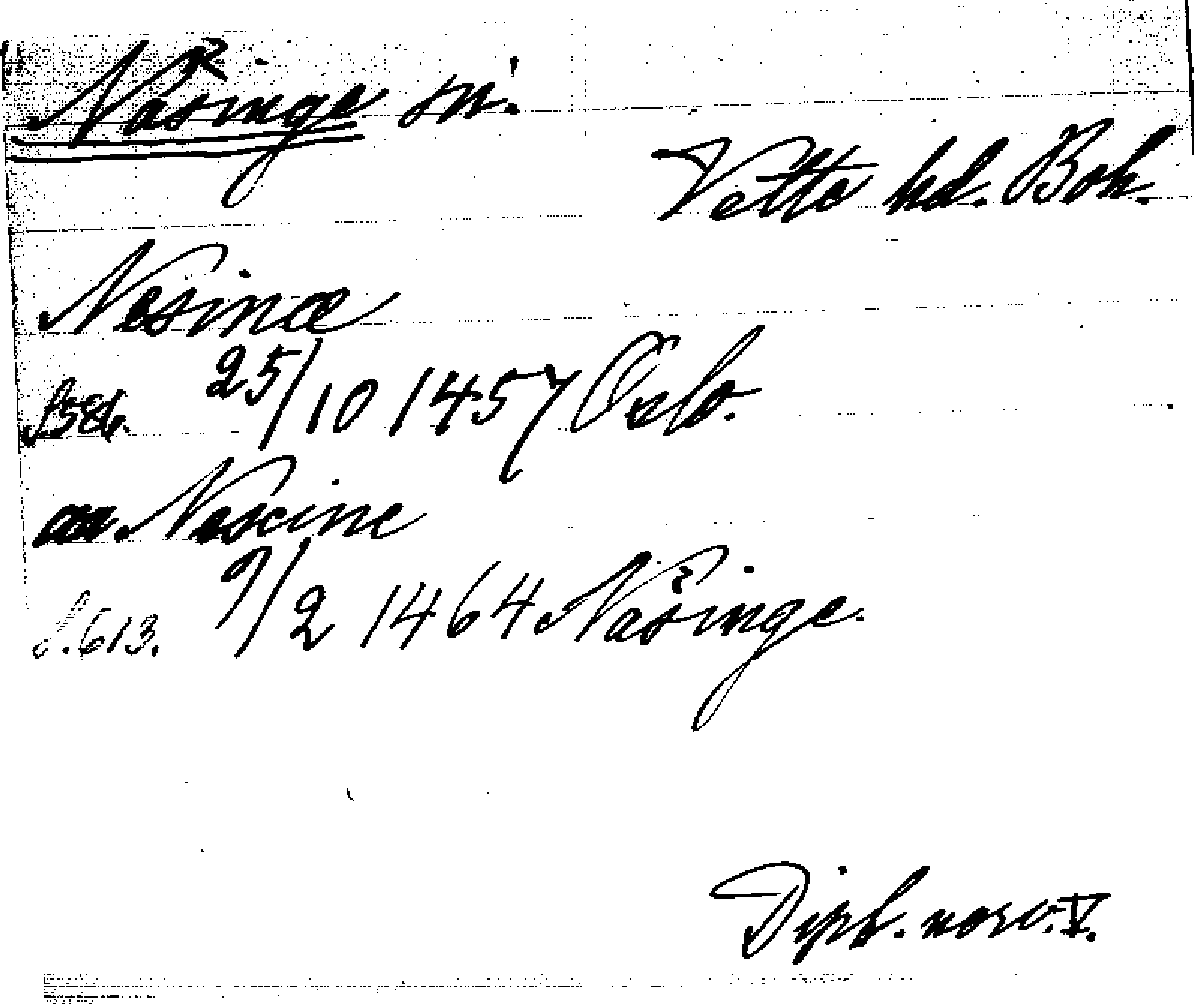 Näsinge sn.
Vette hd. Boh.
Nesinæ
s. 586. 25/10 1457 Oslo.
Nescine
s. 613. 9/2 1464 Näsinge.
Dipl. norv. V.